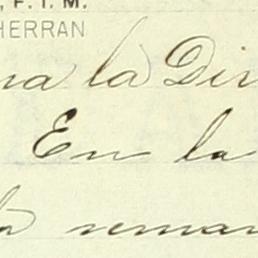 , F. I. M.
HERRAN
na la Dir
En la
la seman